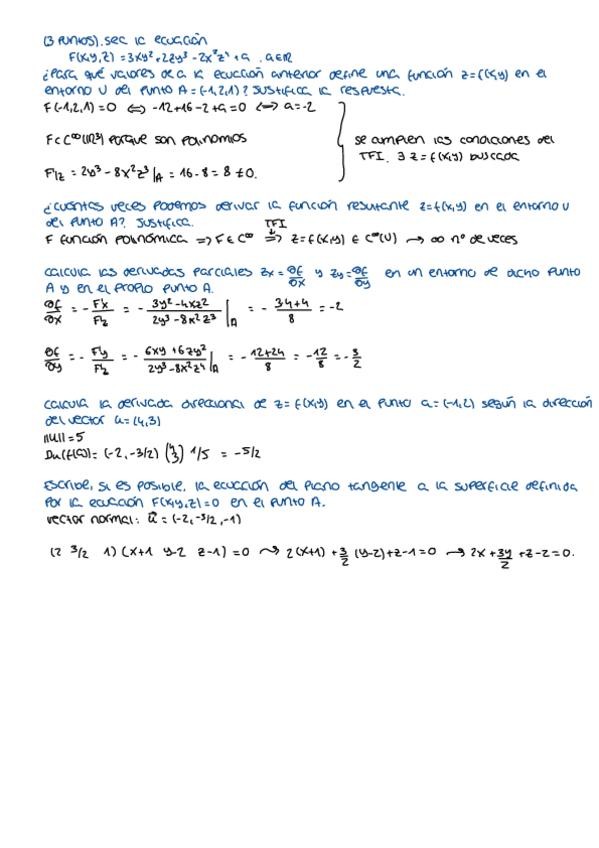 (3 PUNTOS). sea la ecuación
F(x,y,z) = 3xy² + 2zy³ - 2x²z⁴ + a . a∈ℝ
¿Para qué valores de a la ecuación anterior define una función z=f(x,y) en el
entorno U del punto A = (-1,2,1)? Justifica la respuesta.
F(-1,2,1)=0 ⟺ -12+16-2+a=0 ⟺ a=-2
F∈C^∞(ℝ³) porque son polinomios
F'z = 2y³ - 8x²z³ |A = 16-8 = 8 ≠ 0.
se cumplen las condiciones del
TFI. ∃ z=f(x,y) buscada
¿cuántas veces podemos derivar la función resultante z=f(x,y) en el entorno U
del punto A? Justifica.
F función polinómica => F∈C^∞ TFI => z=f(x,y) ∈ C^∞(U) → ∞ nº de veces
calcula las derivadas parciales zx = ∂f/∂x y zy = ∂f/∂y en un entorno de dicho punto
A y en el propio punto A.
∂f/∂x = - F'x/F'z = - (3y²-4xz²)/(2y³-8x²z³) |A = - (34+4)/8 = -2
∂f/∂y = - F'y/F'z = - (6xy+6zy²)/(2y³-8x²z⁴) |A = - (-12+24)/8 = -12/8 = -3/2
calcula la derivada direccional de z=f(x,y) en el punto a=(-1,2) según la dirección
del vector u=(4,3)
||u||=5
Du(f(a)) = (-2,-3/2) (4 3) 1/5 = -5/2
Escribe, si es posible, la ecuación del plano tangente a la superficie definida
por la ecuación F(x,y,z)=0 en el punto A.
vector normal: u = (-2,-3/2,-1)
(2 3/2 1) (x+1 y-2 z-1) = 0 ⤳ 2(x+1) + 3/2 (y-2)+z-1=0 → 2x + 3y/2 + z-2=0.